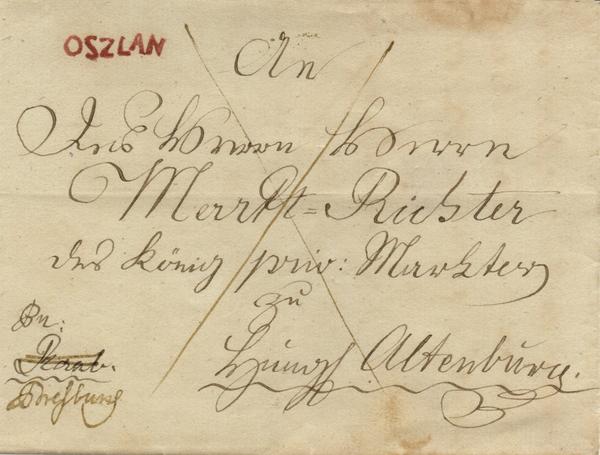 OSZLAN
An
Des Herrn Herrn
Markt=Richter
des König priv: Marktes
zu
Ung: Altenburg.
Pr:
Raab.
Presburg